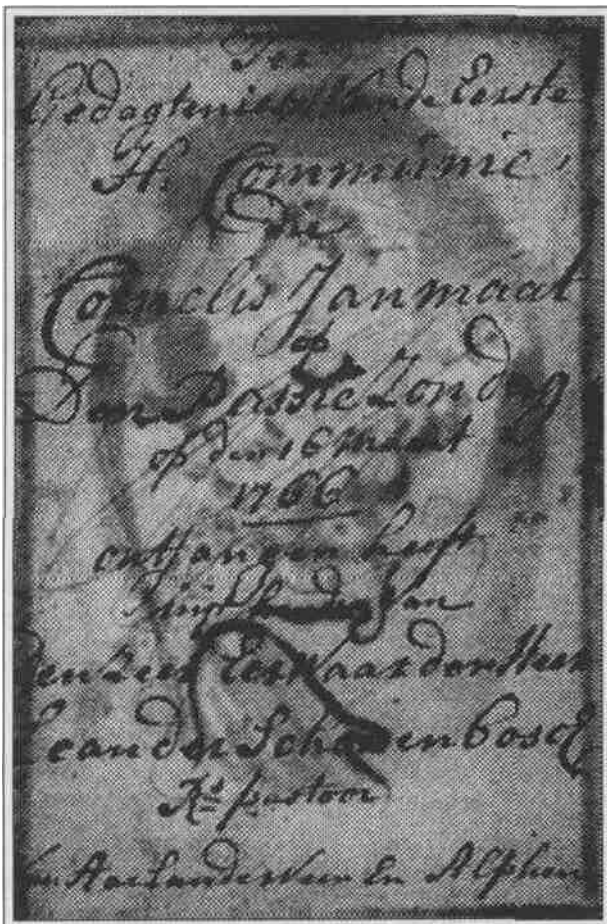 Ter
Gedagtenis van de Eerste
H. Communie
die
Cornelis Janmaat
op
Den Passie Zondag
op den 16 Maart
1766
ontfangen heeft
uijt handen van
den Zeer Eerwaarden Heer
Leander Schapenbosch
Rs pastoor
van Aarlanderveen En Alphen